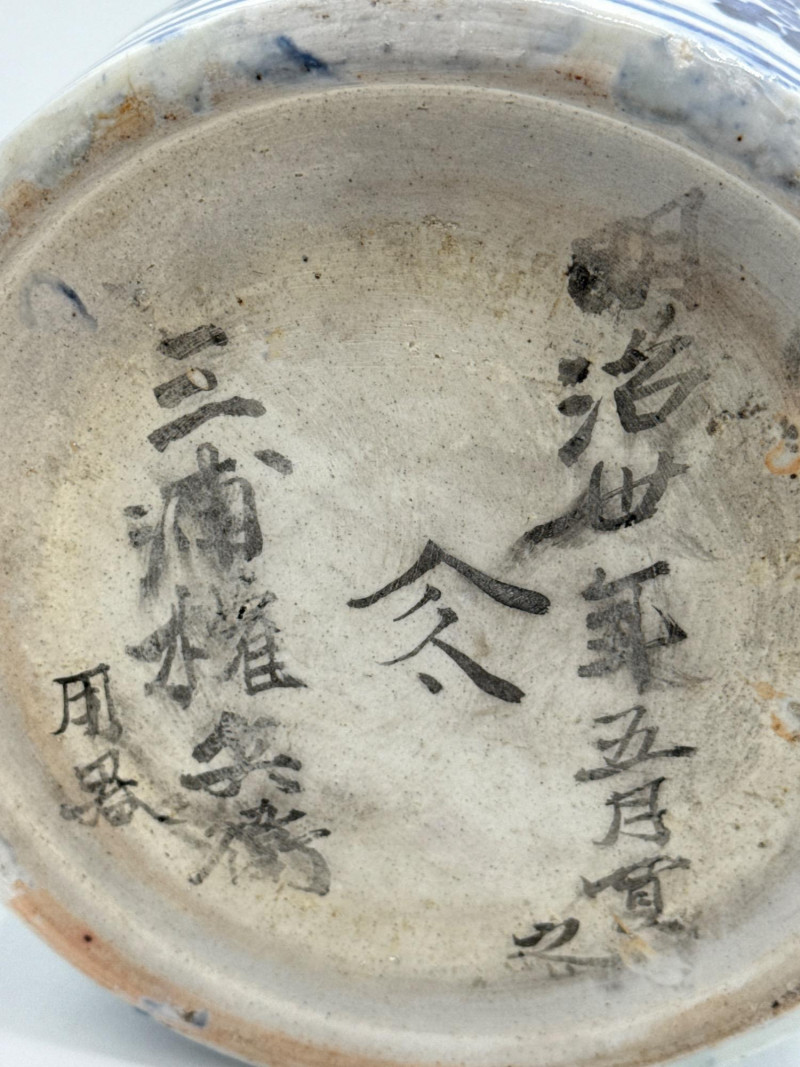 明治丗年五月買
之
三浦権兵衛
用器